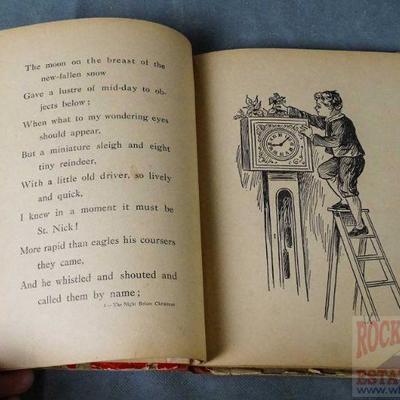 The moon on the breast of the
new-fallen snow
Gave a lustre of mid-day to ob-
jects below;
When what to my wondering eyes
should appear,
But a miniature sleigh and eight
tiny reindeer,
With a little old driver, so lively
and quick,
I knew in a moment it must be
St. Nick!
More rapid than eagles his coursers
they came,
And he whistled and shouted and
called them by name;
2—The Night Before Christmas
ROCK
ESTA